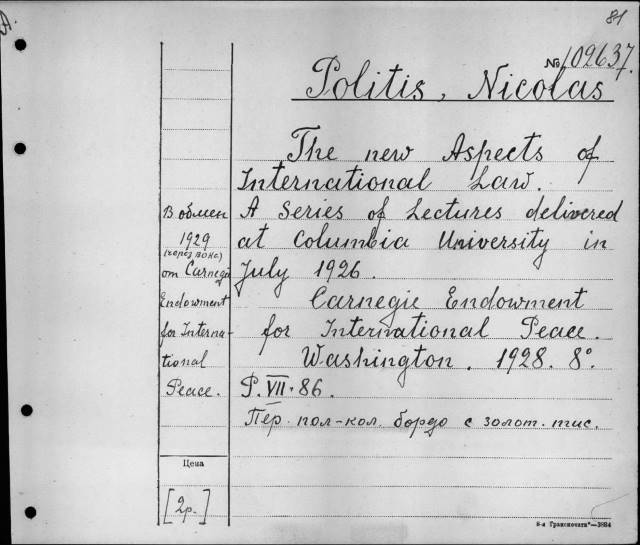 81
№ 102637.
Politis, Nicolas
The new Aspects of
International Law.
A Series of Lectures delivered
at Columbia University in
July 1926.
Carnegie Endowment
for International Peace.
Washington. 1928. 8°.
P. VII + 86.
Пер. пол-кол. бордо с золот. тис.
В обмен
1929
(через ВОКС)
от Carnegie
Endowment
for Interna-
tional
Peace.
Цена
[2р.]
8-я Гранспечати"—3824